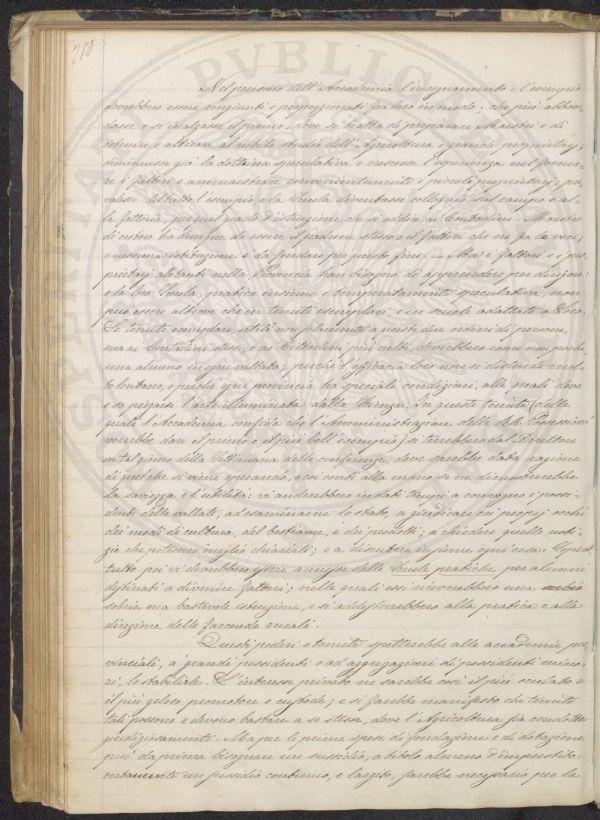 280
Nel pensiero dell'Accademia l'insegnamento e l'esempio
dovrebbero essere congiunti e proporzionati fra loro in modo, che più abbon-
dasse e si inalzasse il primo, dove si tratta di preparare Maestri e di
istruire e attirare al nobile studio dell'Agricoltura i grandi proprietarj;
diminuisse già la dottrina speculativa e crescesse l'esperienza nel forma-
re i fattori e ammaestrare convenientemente i piccoli proprietarj; pre-
valesse del tutto l'esempio, e la Scuola diventasse colloquio sul campo e al-
la fattoria, in quel grado d'istruzione che si addice ai Contadini. Maestro
di costoro ha dunque da essere il padrone stesso o il fattore che ne fa le veci;
e nessuna istituzione è da fondare per questo fine. — Ma i fattori e i pro-
prietarj abitanti nella Provincia han bisogno di apprendere per dirigere:
e la loro Scuola, pratica insieme e temperatamente speculativa, non
può essere altrove che in tenute esemplari, e in scuole adattate a loro.
Le tenute esemplari, utili non solamente a questi due ordini di persone,
ma ai contadini stessi, e ai possidenti più culti, dovrebbero essere non poche,
una almeno in ogni vallata; perchè l'efficacia loro non si distende mol-
to lontano, e perchè ogni provincia ha speciali condizioni, alle quali deve
e sa piegarsi l'arte illuminata dalla Scienza. In queste tenute (delle
quali l'Accademia confida che l'Amministrazione delle RR. Possessioni
vorrebbe dare il primo e il più bell'esempio) si terrebbero dal Direttore
in tal giorno della Settimana delle conferenze, dove sarebbe data ragione
di quel che si viene operando, e coi conti alla mano se ne dimostrerebbe
la saviezza e l'utilità: vi anderebbero in dati tempi a convegno i possi-
denti della vallata, ad esaminarne lo stato, a giudicare coi proprj occhi
dei modi di cultura, del bestiame, e dei prodotti; a chiedere quelle noti-
zie che potessero meglio chiarirli; e a discutere insieme ogni cosa. Soprat-
tutto poi vi dovrebbero essere annesse delle Scuole pratiche, per alunni
destinati a divenire fattori; nelle quali essi riceverebbero una
sobria ma bastevole istruzione, e si addestrerebbero alla pratica e alla
direzione delle faccende rurali.
Questi poderi o tenute spetterebbe alle accademie pro-
vinciali, a' grandi possidenti o ad aggregazioni di possidenti mino-
ri, lo stabilirle. L'interesse privato ne sarebbe così il più oculato e
il più geloso promotore e custode; e si farebbe manifesto che tenute
tali possono e devono bastare a se stesse, dove l'Agricoltura sia condotta
giudiziosamente. Ma per le prime spese di fondazione e di dotazione
può da prima bisognare un sussidio, a titolo almeno d'imprestito:
un sussidio continuo, e largito, sarebbe necessario per le